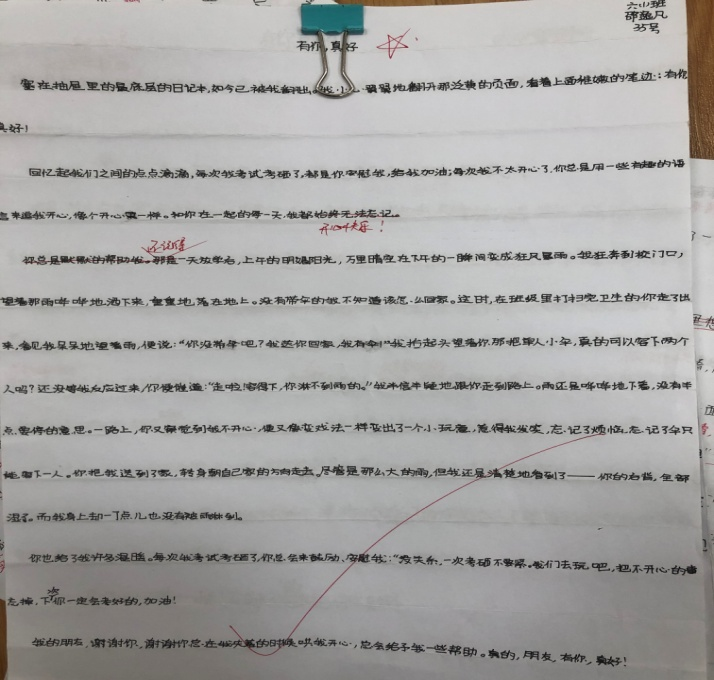 六(1)班
35号
有你,真好
塞在抽屉里的最底层的日记本,如今已被我翻出,我小 翼翼地翻开那泛黄的页面,看着上面稚嫩的笔迹:有你
真好!
回忆起我们之间的点点滴滴,每次我考试考砸了,都是你安慰我,给我加油;每次我不太开心了,你总是用一些有趣的语
言来逗我开心,像个开心果一样。和你在一起的每一天,我都始终无法忘记。
开心快乐!
还记得
你总是默默的帮助我。那是一天放学后,上午的明媚阳光,万里晴空在下午的一瞬间变成狂风暴雨。我狂奔到校门口,
望着那雨哗哗地洒下来,重重地落在地上。没有带伞的我不知道该怎么回家。这时,在班级里打扫完卫生的你走了出
来,看见我呆呆地望着雨,便说:“你没带伞吧?我送你回家,我有伞!”我抬起头望着你那把单人小伞,真的可以容下两个
人吗?还没等我反应过来,你便催道:“走啦,容得下,你淋不到雨的。”我半信半疑地跟你走到路上。雨还是哗哗地下着,没有半
点要停的意思。一路上,你又察觉到我不开心,便又像变戏法一样变出了一个小玩意,惹得我发笑,忘记了烦恼,忘记了伞只
能容下一人。你把我送到了家,转身朝自己家的方向走去。尽管是那么大的雨,但我还是清楚地看到了——你的右背,全部
湿了。而我身上却一丁点儿也没有被雨淋到。
你也给了我许多温暖。每次我考试考砸了,你总会来鼓励、安慰我:“没关系,一次考砸不要紧。我们去玩吧,把不开心的
忘掉,下次你一定会考好的,加油!
我的朋友,谢谢你,谢谢你总在我失落的时候哄我开心,总会给予我一些帮助。真的,朋友,有你,真好!